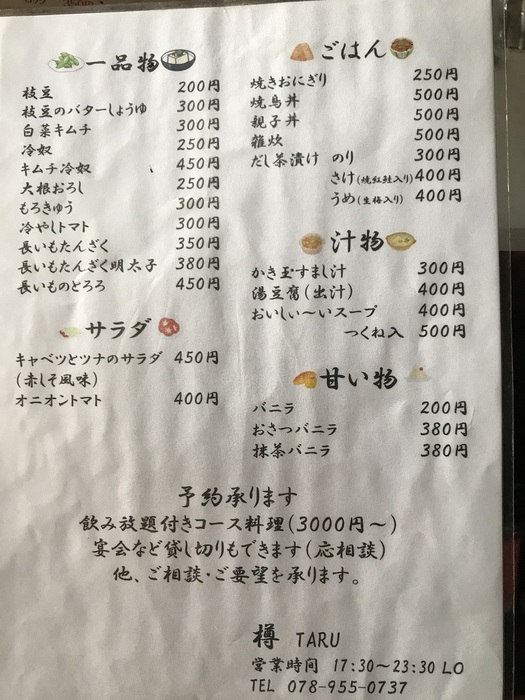 一品物
枝豆 200円
枝豆のバターしょうゆ 300円
白菜キムチ 300円
冷奴 250円
キムチ冷奴 450円
大根おろし 250円
もろきゅう 300円
冷やしトマト 300円
長いもたんざく 350円
長いもたんざく明太子 380円
長いものとろろ 450円
サラダ
キャベツとツナのサラダ 450円
(赤しそ風味)
オニオントマト 400円
ごはん
焼きおにぎり 250円
焼鳥丼 500円
親子丼 500円
雑炊 500円
だし茶漬け のり 300円
さけ(焼紅鮭入り) 400円
うめ(生梅入り) 400円
汁物
かき玉すまし汁 300円
湯豆腐(出汁) 400円
おいしい〜いスープ 400円
つくね入 500円
甘い物
バニラ 200円
おさつバニラ 380円
抹茶バニラ 380円
予約承ります
飲み放題付きコース料理(3000円〜)
宴会など貸し切りもできます(応相談)
他、ご相談・ご要望を承ります。
樽 TARU
営業時間 17:30~23:30 LO
TEL 078-955-0737